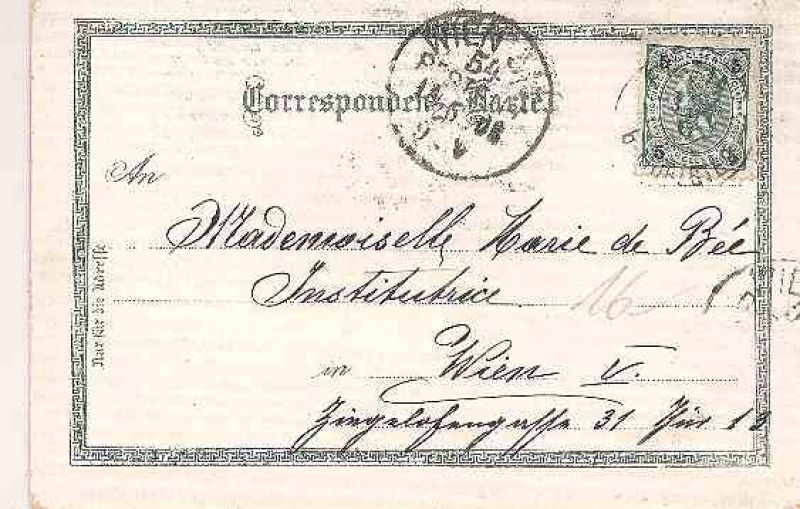 WIEN
54
Correspondenz-Karte.
5 5
5 5
An
Mademoiselle Marie de Bée
Institutrice
16
in Wien V.
Ziegelofengasse 31 Thür 13
Nur für die Adresse